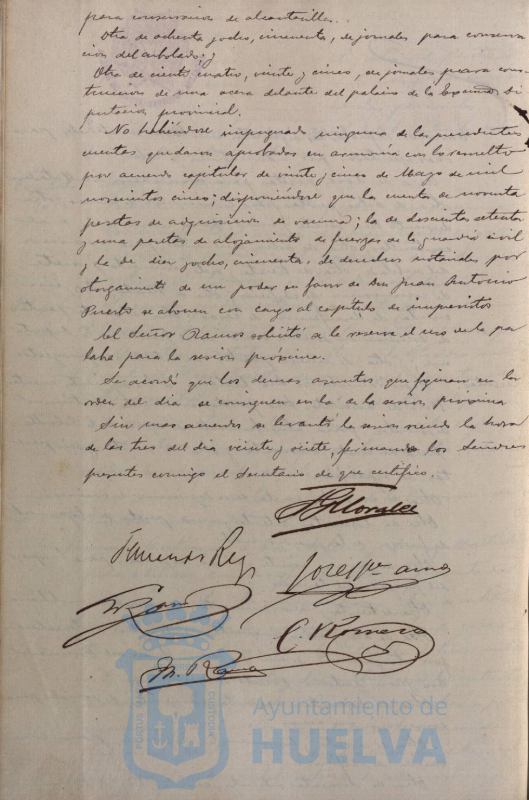 para conservacion de alcantarilla..
Otra de ochenta y ocho, cincuenta, de jornales para conserva
cion del arbolado; y
Otra de ciento cuatro, veinte y cinco, de jornales para cons-
truccion de una acera delante del palacio de la Excma Di
putacion provincial.
No habiéndose impugnado ninguna de las precedentes
cuentas quedaron aprobadas en armonía con lo resuelto
por acuerdo capitular de veinte y cinco de Mayo de mil
novecientos cinco; disponiéndose que la cuenta de noventa
pesetas de adquisicion de vacuna; la de doscientas setenta
y una pesetas de alojamiento de fuerzas de la guardia civil
y la de diez y ocho, cincuenta, de derechos notariales por
otorgamiento de un poder en favor de Don Juan Antonio
Puerto se abonen con cargo al capítulo de imprevistos
El Señor Ramos solicitó se le reserve el uso de la pa
labra para la sesion próxima.
Se acordó que los demas asuntos que figuran en la
orden del dia se consignen en la de la sesion próxima
Sin mas acuerdos se levantó la sesion siendo la hora
de las tres del dia veinte y siete, firmando los Señores
presentes conmigo el Secretario de que certifico.
Morales
Rey
C. Romero
M. Ramos
PORTUS MARIS CUSTODIA
Ayuntamiento de
HUELVA